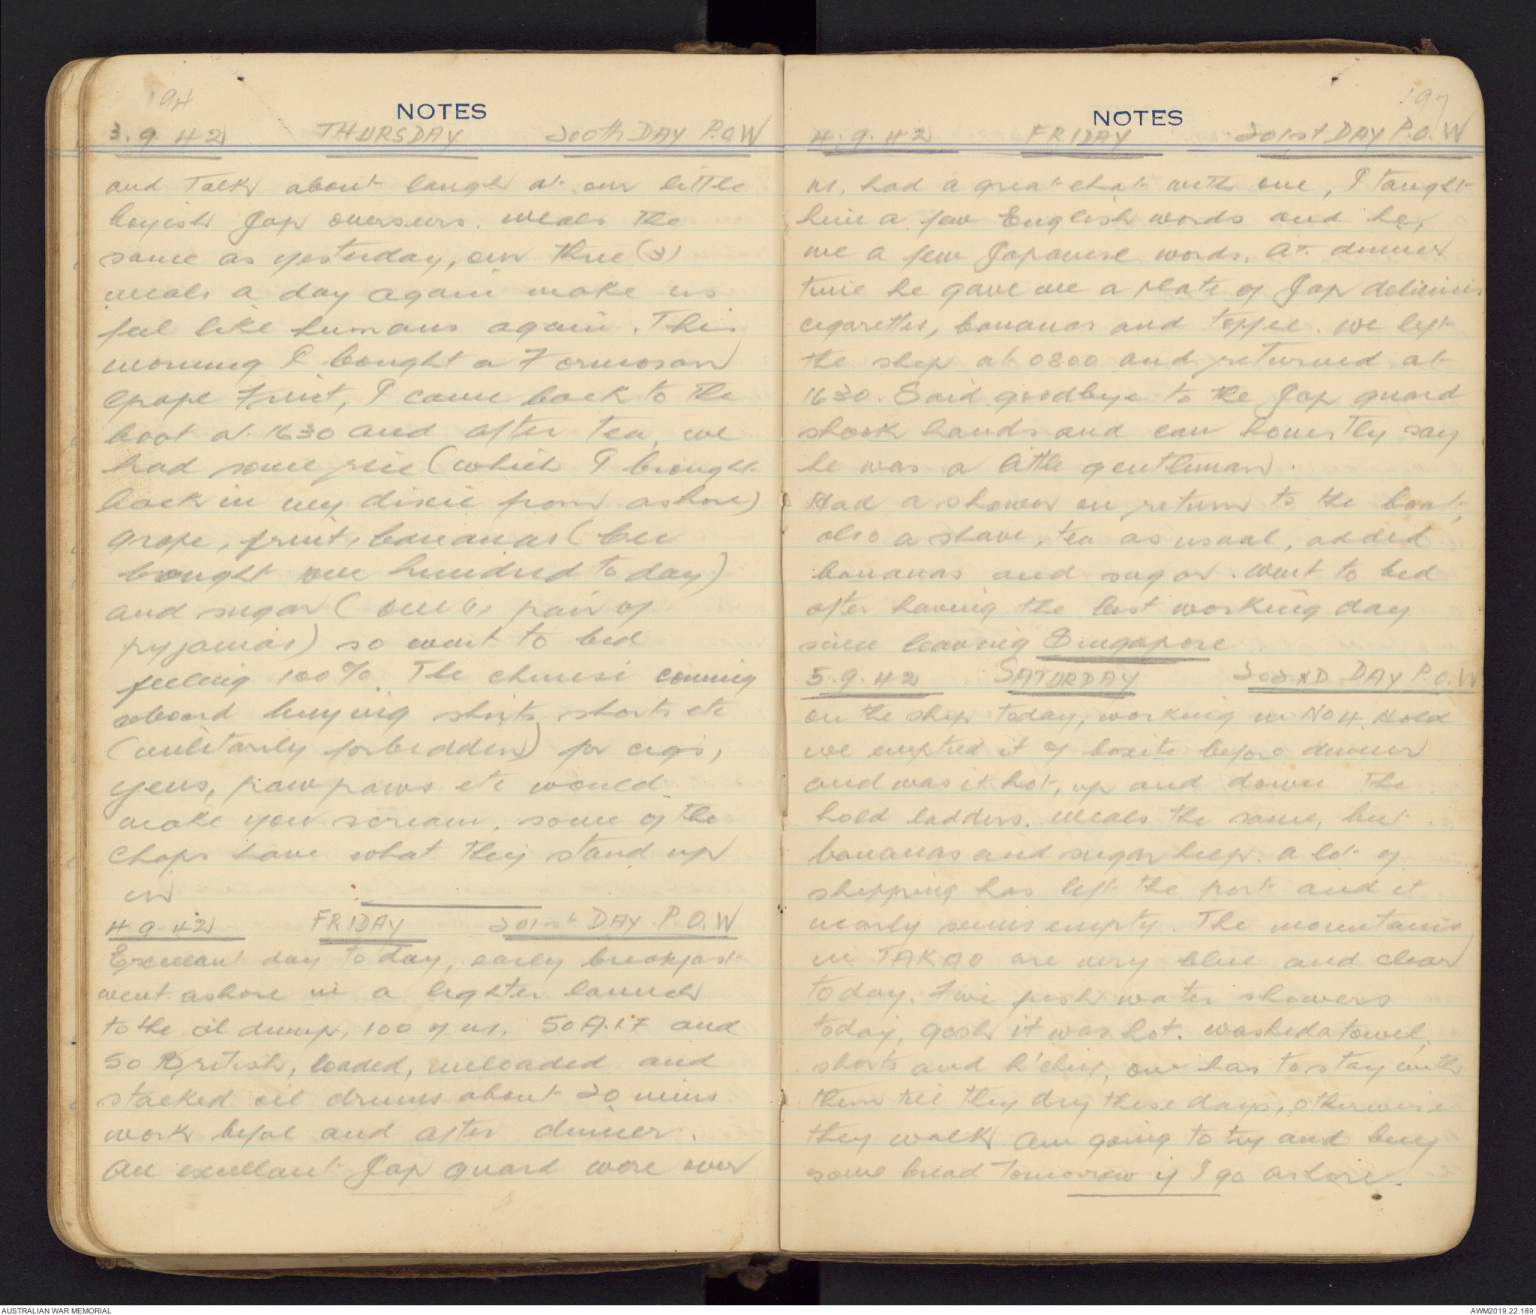 194
NOTES
3.9.42 THURSDAY 200th DAY P.O.W
and Talk about laugh at our little
boyish Jap overseers. meals the
same as yesterday, our three (3)
meals a day again make us
feel like humans again. This
morning I bought a Formosan
grape Fruit, I came back to the
boat at 1630 and after tea, we
had some rice (which I brought
back in my dixie from ashore)
grape, fruit, bananas (
bought one hundred today)
and sugar ( pair of
pyjamas) so went to bed
feeling 100% The chinese coming
aboard buying shirts, shorts etc
(militarily forbidden) for cigs,
yens, pawpaws etc would
make you scream. some of the
chaps have what they stand up
in
4.9.42 FRIDAY 201st DAY P.O.W
Excellant day today, early breakfast
went ashore in a lighter launch
to the oil dump, 100 of us, 50 A.I.F and
50 British, loaded, unloaded and
stacked oil drums about 20 mins
work before and after dinner.
An excellant Jap guard were over
197
NOTES
4.9.42 FRIDAY 201st DAY P.O.W
us, had a great chat with one, I taught
him a few English words and he,
me a few Japanese words. At dinner
time he gave me a plate of Jap delicious
cigarettes, bananas and toffee. we left
the ship at 0800 and returned at
1630. Said goodbye to the Jap guard
shook hands and can honestly say
he was a little gentleman.
Had a shower on return to the boat,
also a shave, tea as usual, added
bananas and sugar. went to bed
after having the best working day
since leaving Singapore
5.9.42 SATURDAY 202ND DAY P.O.W
on the ship today, working in No 4 Hold
we emptied it of boxite before dinner
and was it hot, up and down the
hold ladders. meals the same, but
bananas and sugar help. a lot of
shipping has left the port and it
nearly seems empty. The mountains
in TAKAO are very blue and clear
today. Five fresh water showers
today, gosh it was hot. washed a towel,
shorts and h'chief, one has to stay with
them till they dry these days, otherwise
they walk Am going to try and buy
some bread tomorrow if I go ashore.
AUSTRALIAN WAR MEMORIAL
AWM2019.22.189